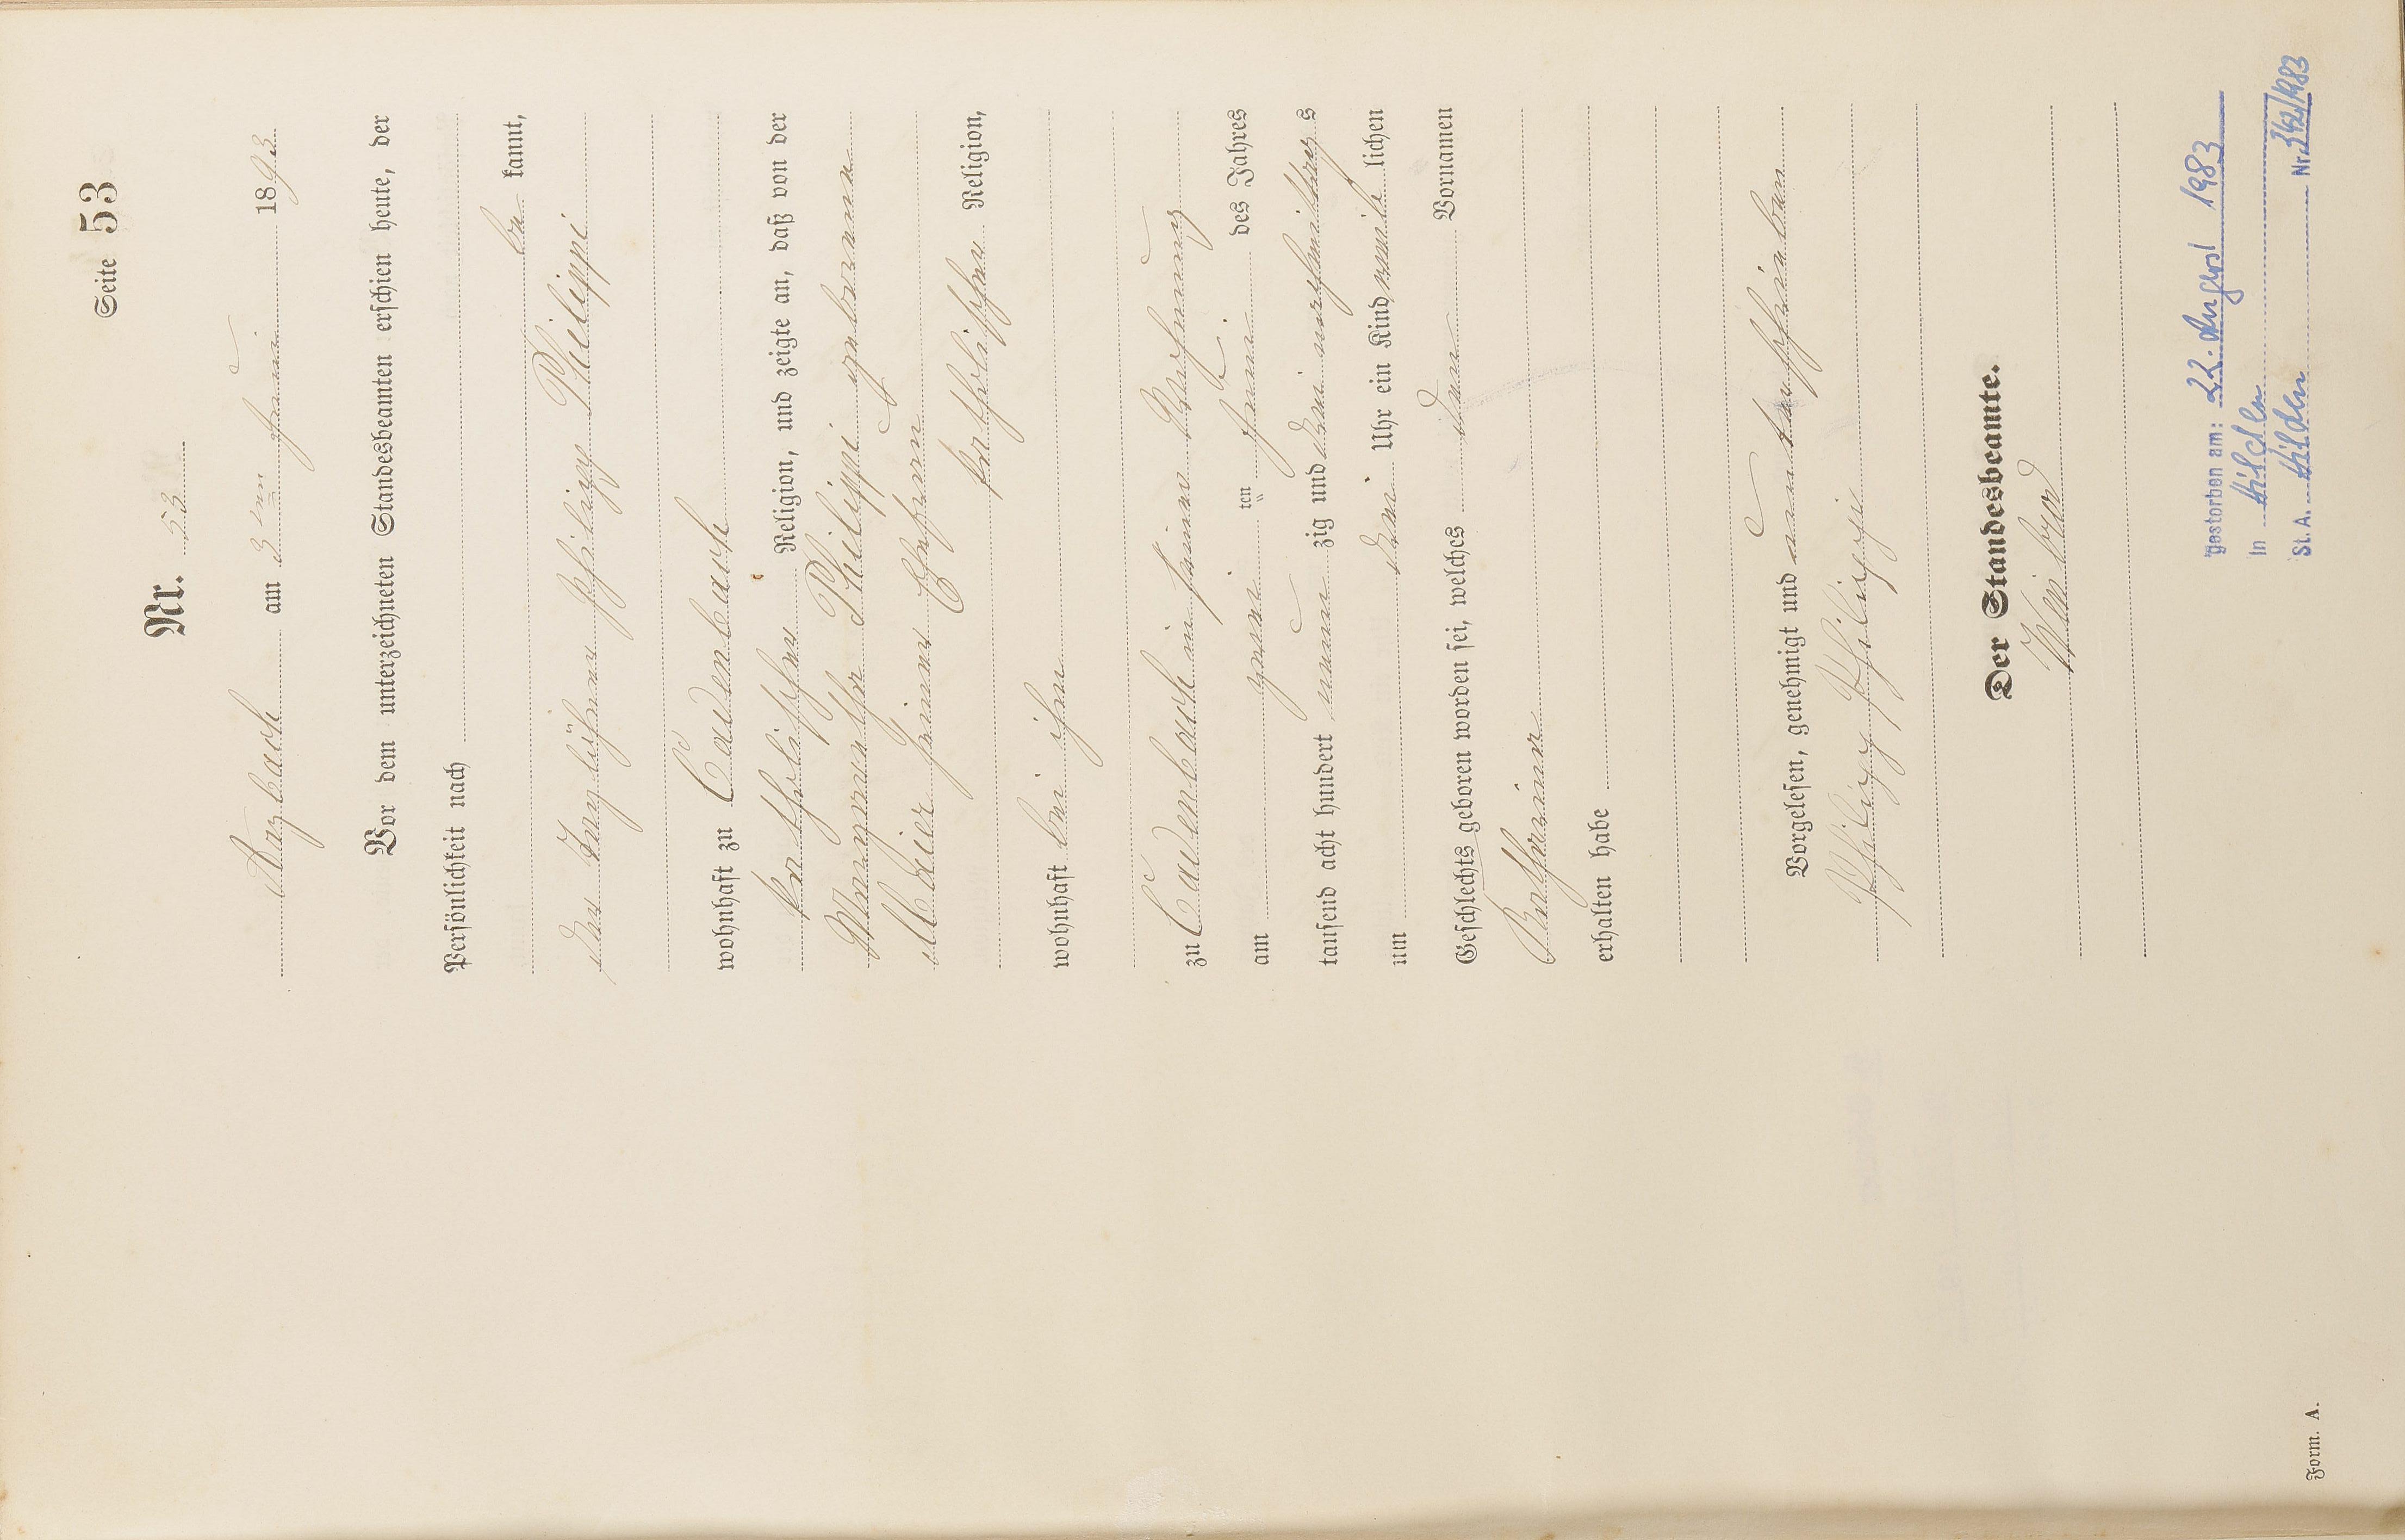 Seite 53
Nr. 53.
Atzbach am 3ten Juni 1893.
Vor dem unterzeichneten Standesbeamten erschien heute, der
Persönlichkeit nach
be kannt,
der Philipp Philippi
wohnhaft zu Caden bach
katholischer Religion, und zeigte an, daß von der
Margaretha Philippi geborenen
Maier seiner Ehefrau
katholischer Religion,
wohnhaft bei ihm
zu Cadenbach in seiner Wohnung
am zwei ten Juni des Jahres
tausend acht hundert neun zig und drei nachmittags
um drei Uhr ein Kind weib lichen
Geschlechts geboren worden sei, welches den Vornamen
Katharina
erhalten habe
Vorgelesen, genehmigt und unterschrieben
Philipp Philippi
Der Standesbeamte.
Gestorben am: 22. August 1983
In Hilden
St. A. Hilden Nr. 342/1983
Form. A.